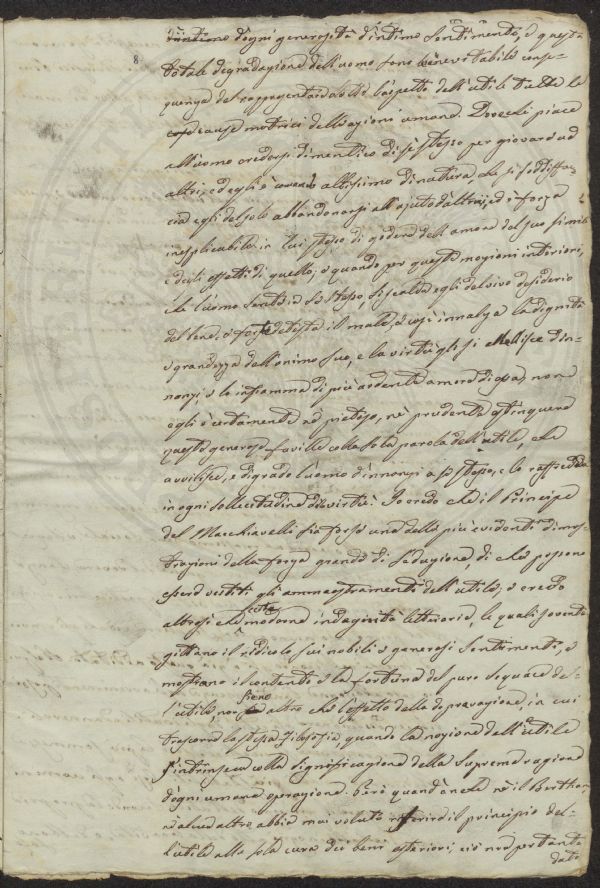 d'ogni generosità d'intimo sentimento, e questa
8
totale degradazione dell'uomo sono inevitabile conse-
guenza del rappresentarsi sotto l'aspetto dell'utile tutte le
cause motrici delle azioni umane. Dovechè piace
all'uomo credersi dimentico di sè stesso per giovare ad
altri, ed egli è altissimo di natura che si soddisfac-
cia egli del solo abbandonarsi all'ajuto d'altrui, ed è forza
inesplicabile in lui stesso di godere dell'amore del suo simile
e degli effetti di quello; e quando per queste mozioni interiori,
che l'uomo sente in sè stesso, si scalda egli del vivo desiderio
del bene, e forte detesta il male, e così innalza la dignità
e grandezza dell'animo suo, e la virtù gli si abbellisce din-
nanzi, e lo infiamma di più ardente amore di essa, non
egli è certamente nè pietoso, nè prudente estinguere
queste generose faville colla sola parola dell'utile, che
avvilisce, e digrada l'uomo dinnanzi a sè stesso, e lo raffredda
in ogni sollecitudine di virtù. Io credo che il Principe
del Macchiavelli sia forse una delle più evidenti dimos-
trazioni della forza grande di seduzione, di che possono
essere vestiti gli ammaestramenti dell'utile, e credo
altresì che certe moderne indagini letterarie, le quali sovente
gittano il ridicolo sui nobili e generosi sentimenti, e
mostrano il contento e la fortuna del puro seguace del-
l'utile, non siene altro che l'effetto della depravazione, in cui
trascorre la stessa filosofia, quando la nozione dell'utile
s'intrinseca colla significazione della suprema ragione
d'ogni umana operazione. Però quand'anche nè il Bentham
nè alcun altro abbia mai voluto riferire il principio del-
l'utile alla sola cura dei beni esteriori, ciò non pertanto
dato